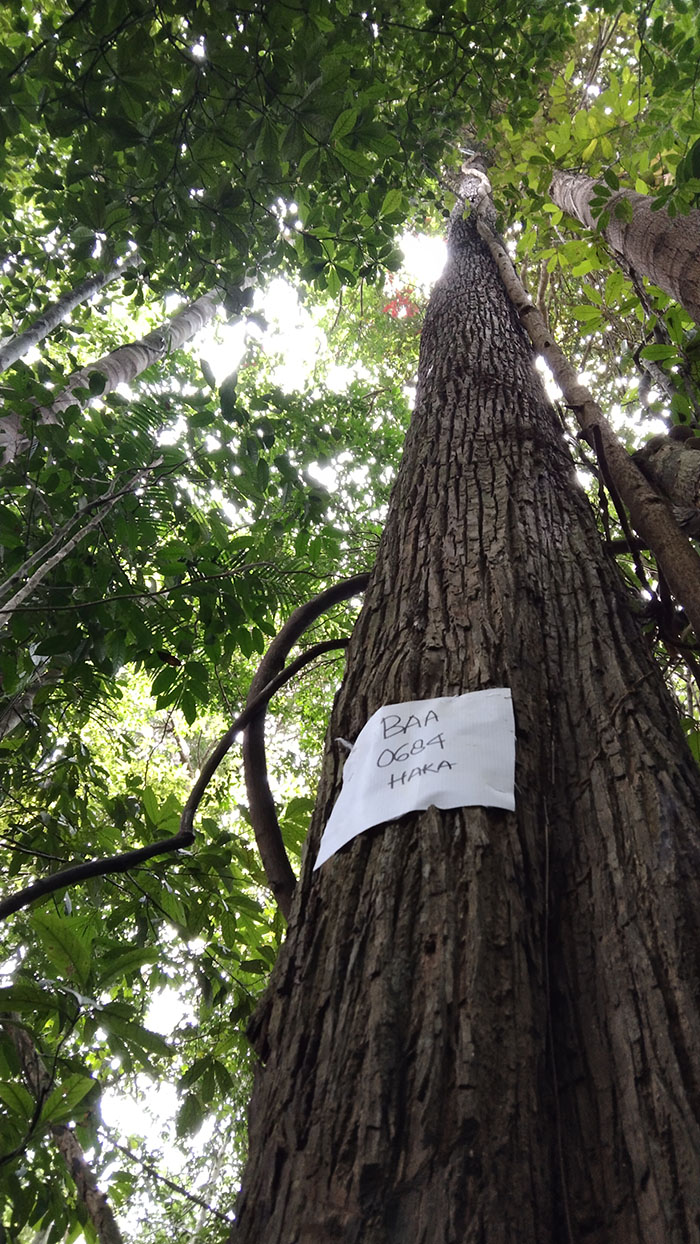 BAA
0684
HAKA